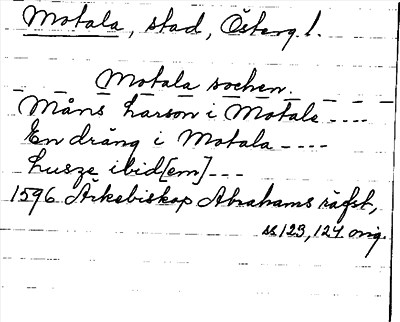 Motala, stad, Österg. l.
Motala socken.
Måns Larson i Motale ----
En dräng i Motala ----
Lusze ibid[em] ---
1596 Arkebiskop Abrahams räfst,
ss 123, 124 orig.